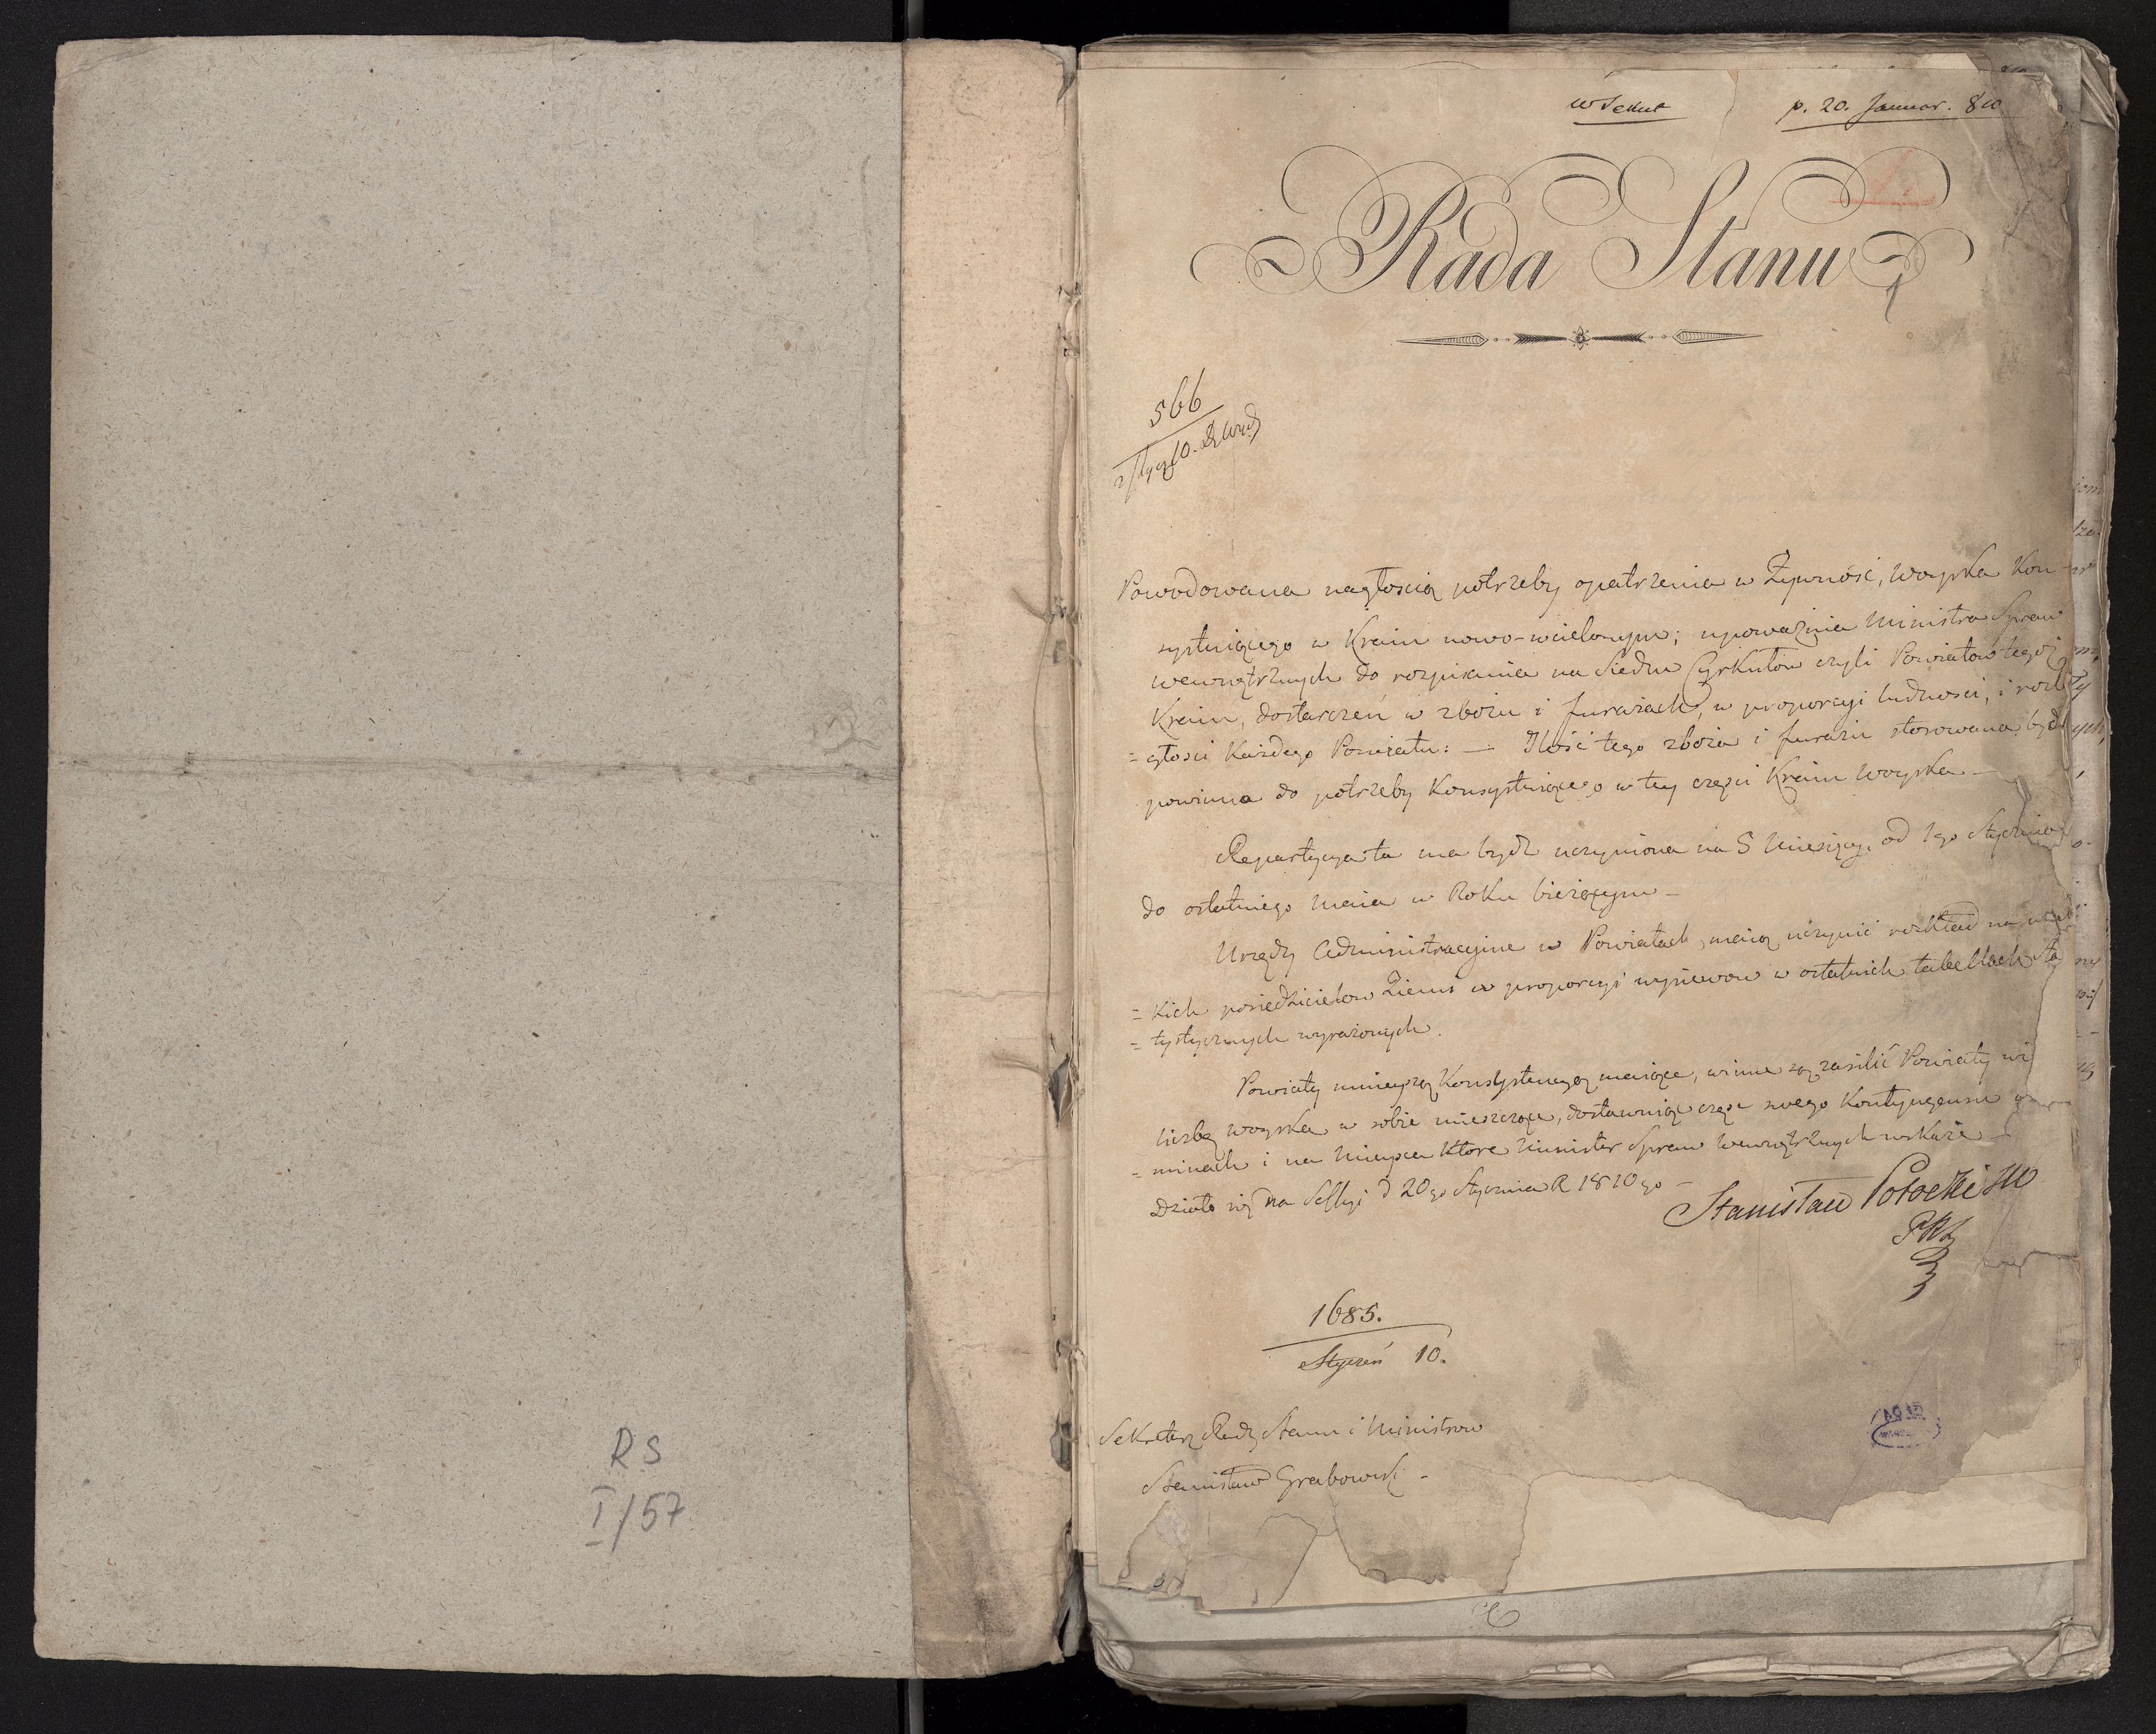 p. 20. Januar. 810
Rada Stanu
1
566
Powodowana nagłością potrzeby opatrzenia w Żywność, Woyska Kon-
systuiącego w Kraiu nowo-wcielonym; upoważnia Ministra Spraw
wewnętrznych do rozpisania na Siedm Cyrkułów czyli Powiatów tegoż
Kraiu, dostarczeń w zbożu i furażach, w proporcyi ludności, i rozle
=głości Każdego Powiatu: — Ilość tego zboża i furażu stosowana bydź
powinna do potrzeby Konsystuiącego w tey części Kraiu Woyska —
Repartycya ta ma bydź uczyniona na 5 Miesięcy, od 1go Stycznia
do ostatniego Maia w Roku bieżącym —
Urzędy Administracyine w Powiatach, maią uczynić rozkład na
=kich posiedzicielow Ziemi w proporcyi wysiewow w ostatnich tabellach sta
=tystycznych wyrażonych.
Powiaty mnieyszą Konsystencyą maiące, winne są zasilić Powiaty
liczbę woyska w sobie mieszczące, dostawuiąc część swego Kontyngensu
=minach i na Mieysca które Minister Spraw Wewnętrznych wskaże —
Działo się na Sessyi d 20go Stycznia R 1810go —
Stanisław Potocki
1685.
Styczeń 10.
Sekretarz Rady Stanu i Ministrow
Stanisław Grabowski -
RS
I/57